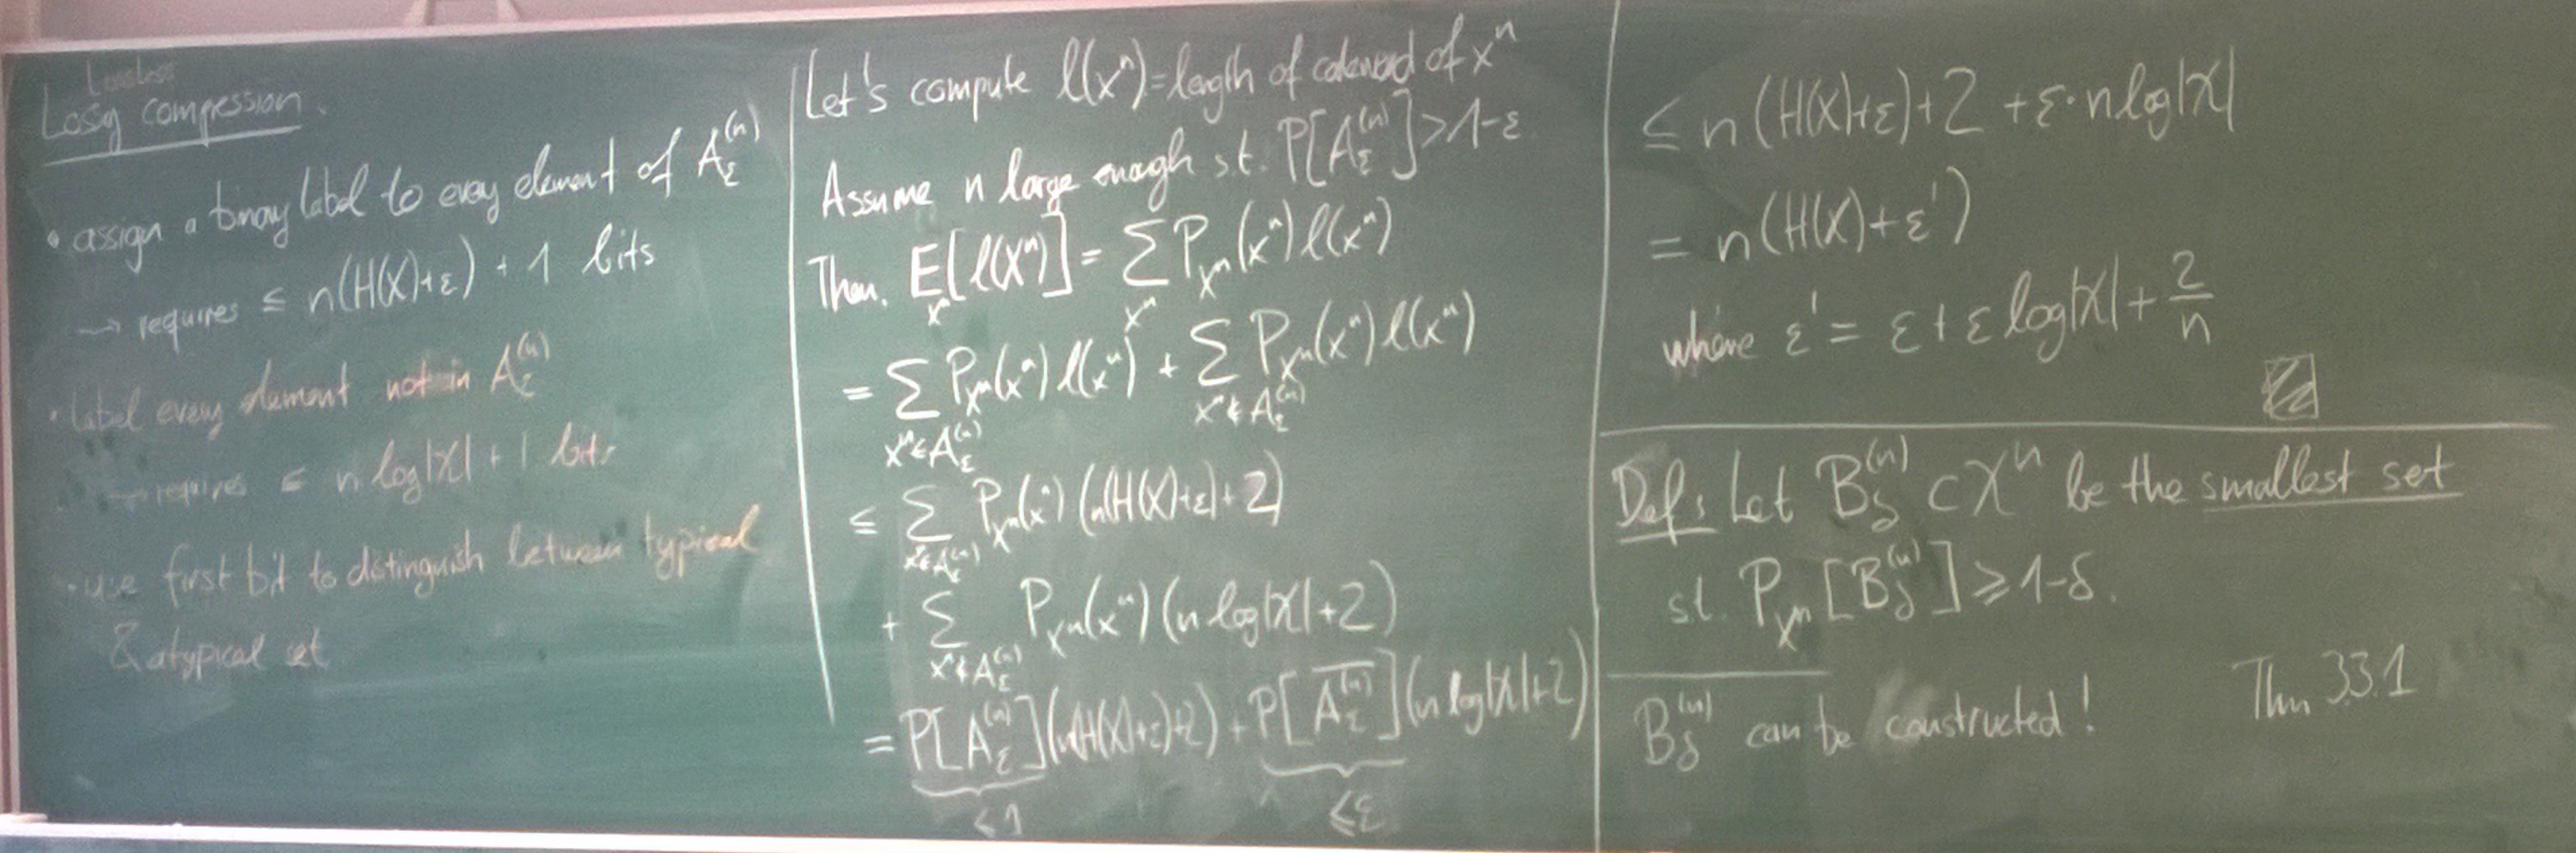 Lossless
Lossy compression.
• assign a binary label to every element of A_ε^(n)
→ requires ≤ n(H(X)+ε) + 1 bits
• label every element not in A_ε^(n)
→ requires ≤ n log|X| + 1 bits
• use first bit to distinguish between typical
& atypical set
Let's compute l(x^n) = length of codeword of x^n
Assume n large enough s.t. P[A_ε^(n)] > 1-ε
Then. E_{X^n}[l(X^n)] = Σ_{x^n} P_{X^n}(x^n) l(x^n)
= Σ_{x^n ∈ A_ε^(n)} P_{X^n}(x^n) l(x^n) + Σ_{x^n ∉ A_ε^(n)} P_{X^n}(x^n) l(x^n)
≤ Σ_{x^n ∈ A_ε^(n)} P_{X^n}(x^n) (n(H(X)+ε)+2)
+ Σ_{x^n ∉ A_ε^(n)} P_{X^n}(x^n) (n log|X|+2)
= P[A_ε^(n)] (n(H(X)+ε)+2) + P[\overline{A_ε^(n)}] (n log|X|+2)
≤1 ≤ε
≤ n(H(X)+ε)+2 + ε·n log|X|
= n(H(X)+ε')
where ε' = ε + ε log|X| + 2/n
Def: Let B_δ^(n) ⊂ X^n be the smallest set
st. P_{X^n}[B_δ^(n)] ≥ 1-δ.
B_δ^(n) can be constructed! Thm 3.3.1